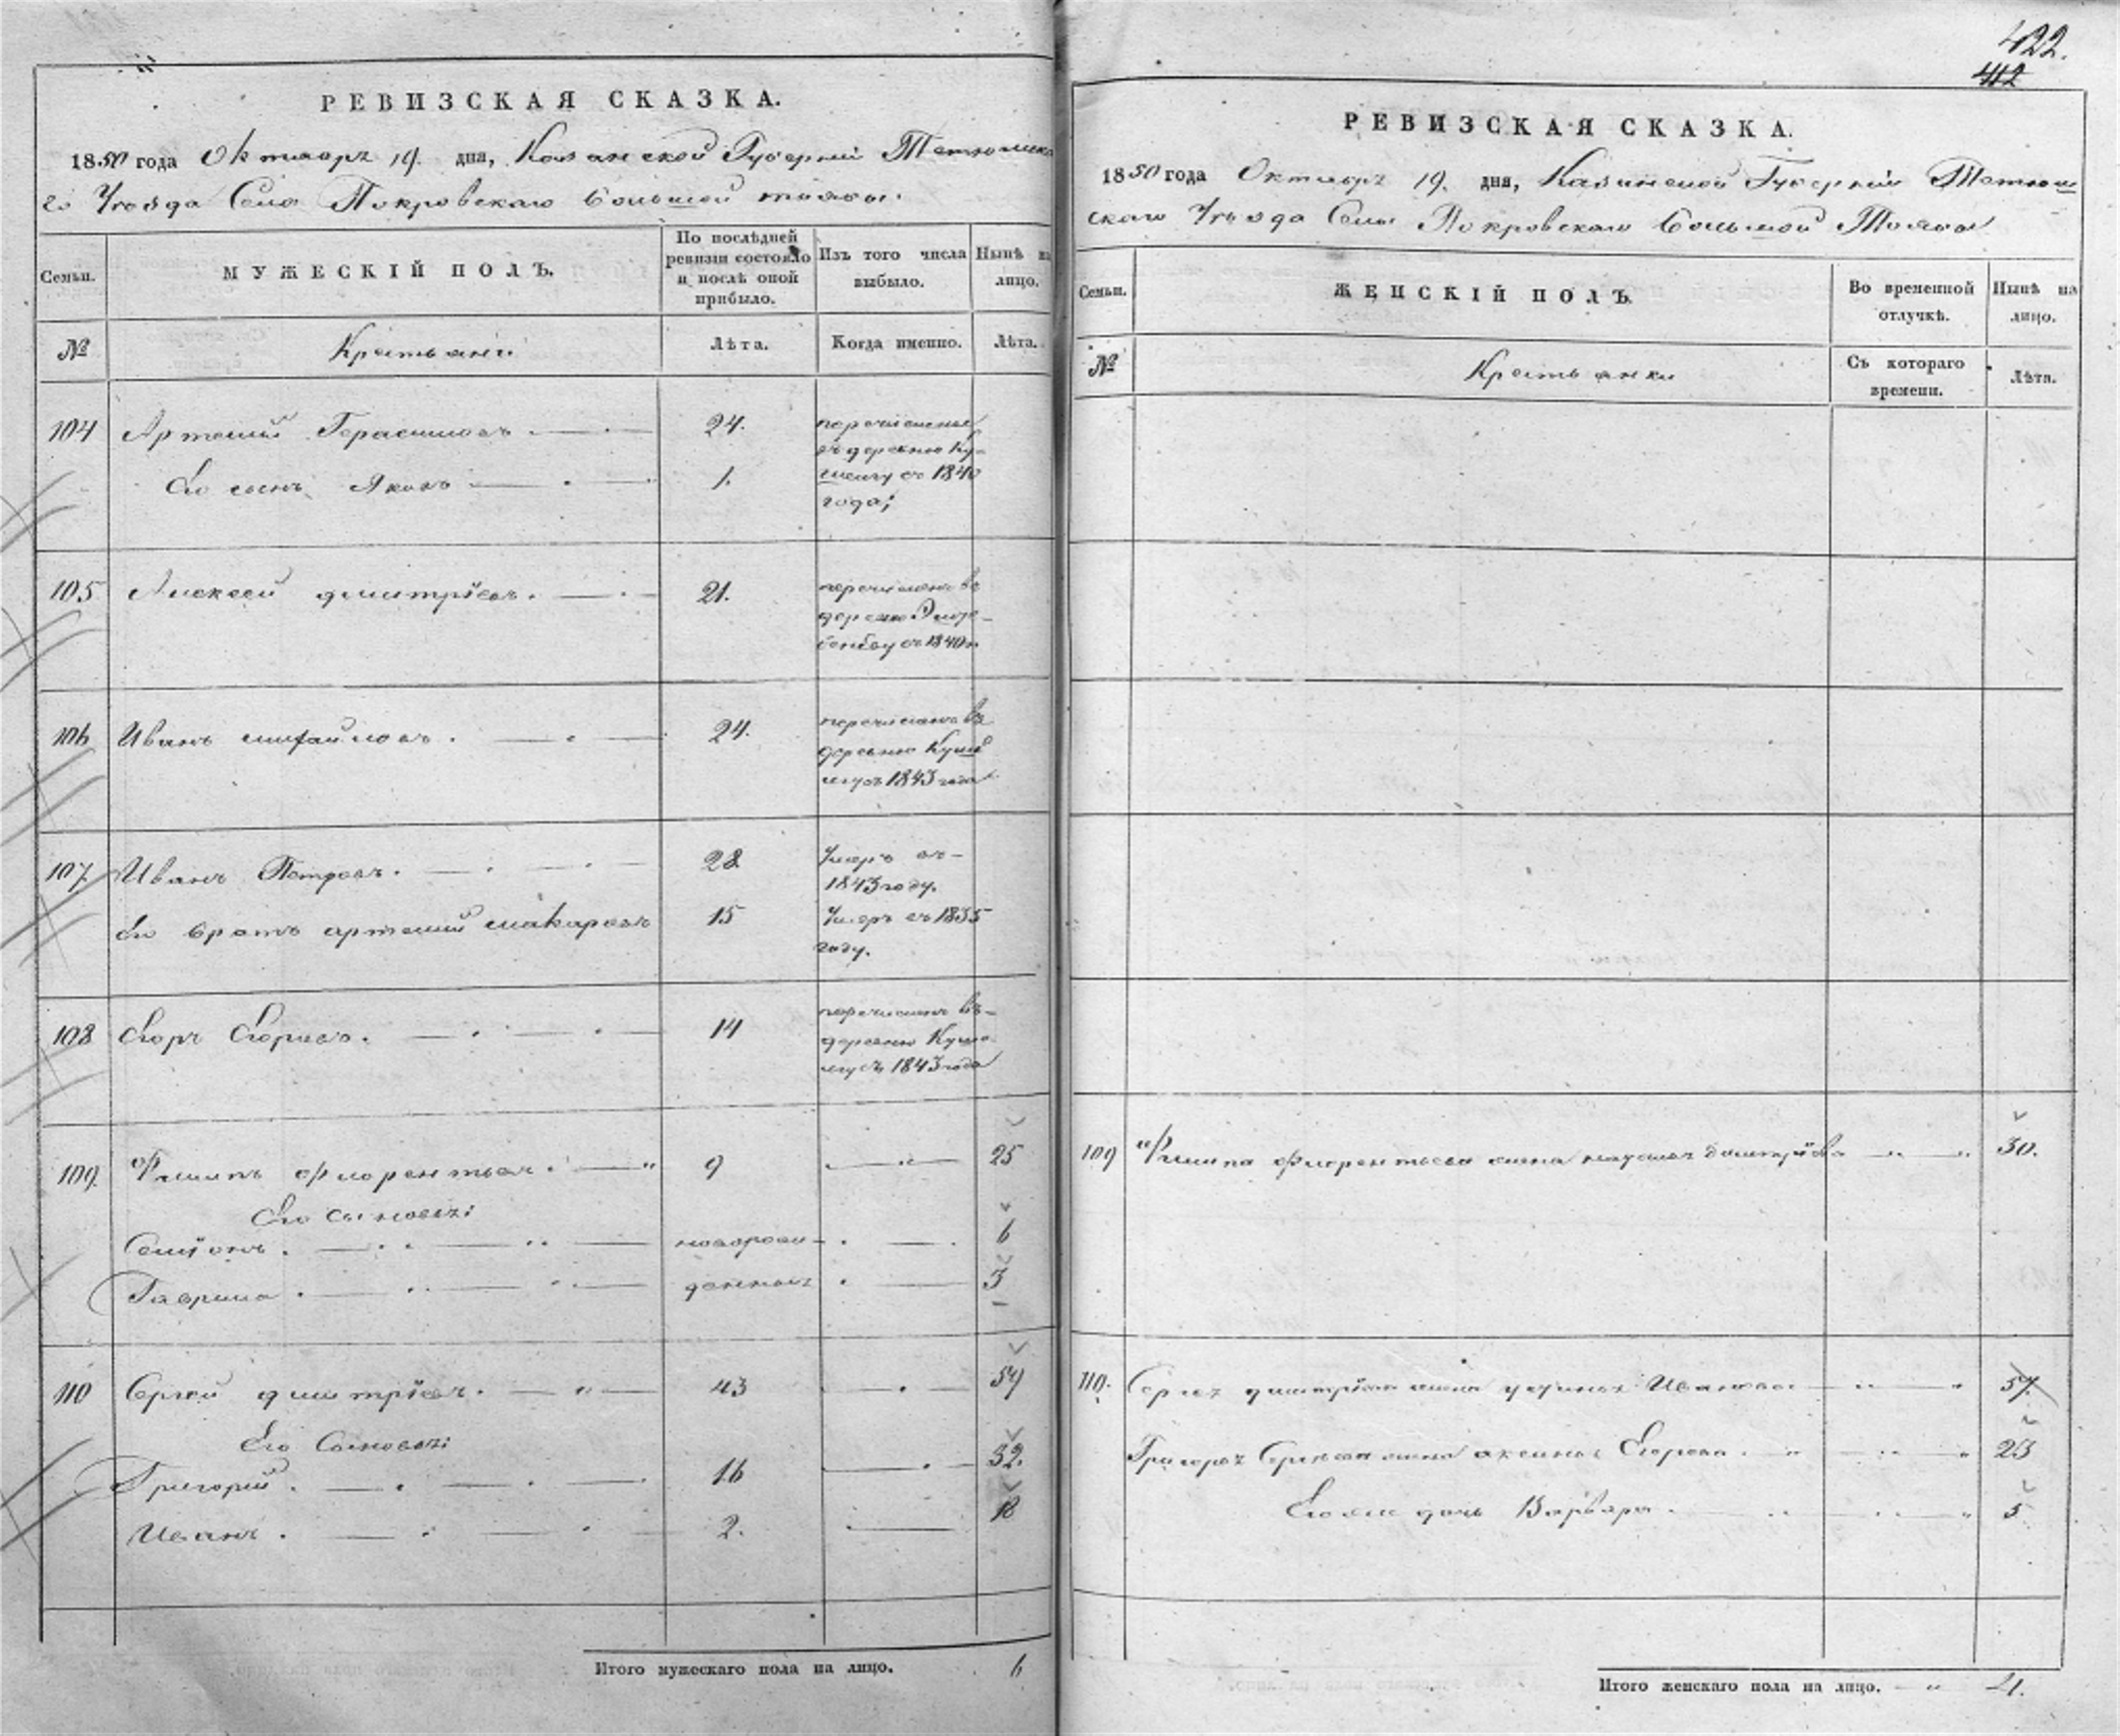 РЕВИЗСКАЯ СКАЗКА.
1850 года Октября 19. дня, Казанской Губерніи Тетюшска
го Уѣзда Села Покровскаго Большой тоябы.
Семьи.
МУЖЕСКІЙ ПОЛЪ.
По послѣдней ревизіи состояло и послѣ оной прибыло.
Изъ того числа выбыло.
Нынѣ на лицо.
№
Крестьяне
Лѣта.
Когда именно.
Лѣта.
104 Артемий Герасимовъ 24. перечислены
въ деревню
Его сынъ Яковъ 1. съ 1840
года;
105 Алексей дмитріевъ. 21. перечисленъ въ
деревню
съ 1840
106 Иванъ михайловъ. 24. перечисленъ въ
деревню
съ 1843 года
107. Иванъ Петровъ. 28 Умеръ въ
1843 году.
Его братъ артемий макаровъ 15 Умеръ въ 1835
году.
108 Егоръ Егоровъ. 14 перечисленъ въ
деревню
съ 1843 года
109. Филипъ Флорентьевъ. 9 25
Его сыновья:
Семіонъ. новорож- 6
Гаврила. денные 3
110 Сергей дмитріевъ. 43 59
Его Сыновья:
Григорий. 16 32.
Иванъ. 2. 18
Итого мужескаго пола на лицо. 6
422.
412
РЕВИЗСКАЯ СКАЗКА.
1850 года Октября 19. дня, Казанской Губерніи Тетюш
скаго Уѣзда Села Покровскаго Большой Тоябы
Семьи.
ЖЕНСКІЙ ПОЛЪ.
Во временной отлучкѣ.
Нынѣ на лицо.
№
Крестьянки
Съ котораго времени.
Лѣта.
109 Филипа Флорентьева жена Дмитріева 30.
110. Сергея дмитріева жена Иванова 57.
Григорья Сергеева жена аксинья Егорова. 23
Его же дочь Варвара. 5
Итого женскаго пола на лицо. 4.